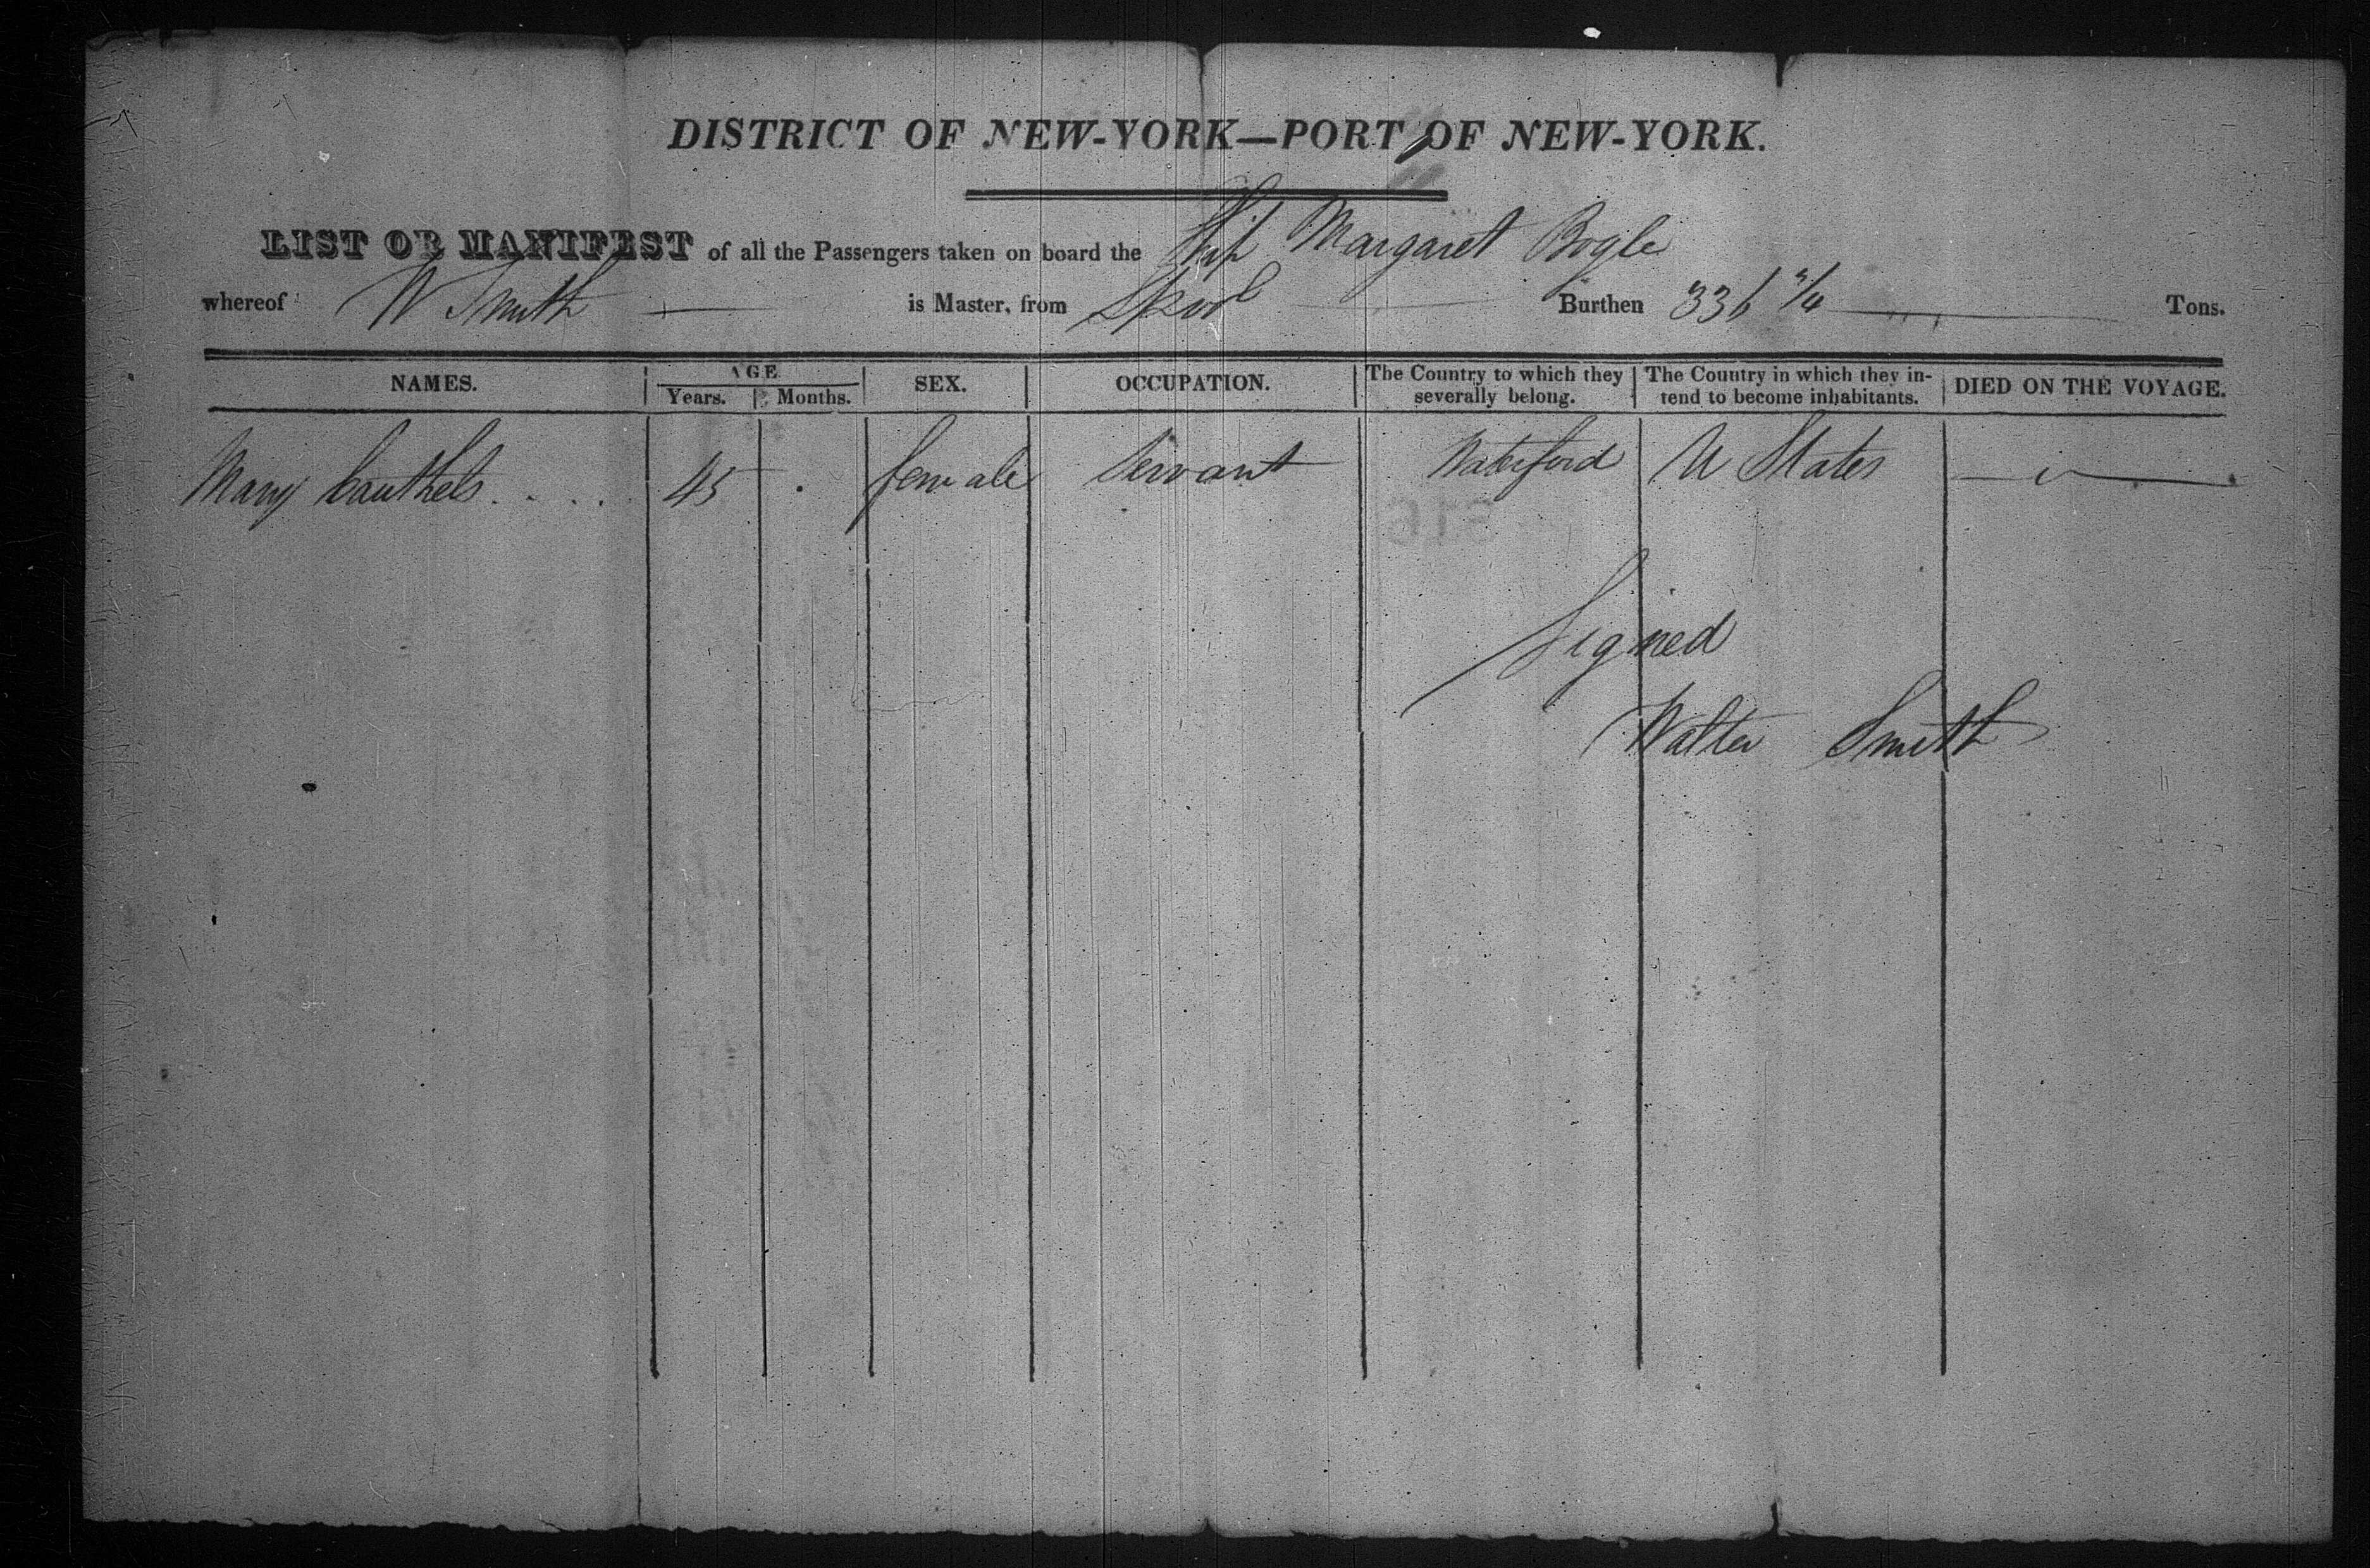 DISTRICT OF NEW-YORK—PORT OF NEW-YORK.
LIST OR MANIFEST of all the Passengers taken on board the Ship Margaret Bogle
whereof W Smith is Master, from Lpool Burthen 336 Tons.
NAMES. AGE Years. Months. SEX. OCCUPATION. The Country to which they severally belong. The Country in which they intend to become inhabitants. DIED ON THE VOYAGE.
Mary 45 female Servant Waterford U States
Signed
Walter Smith